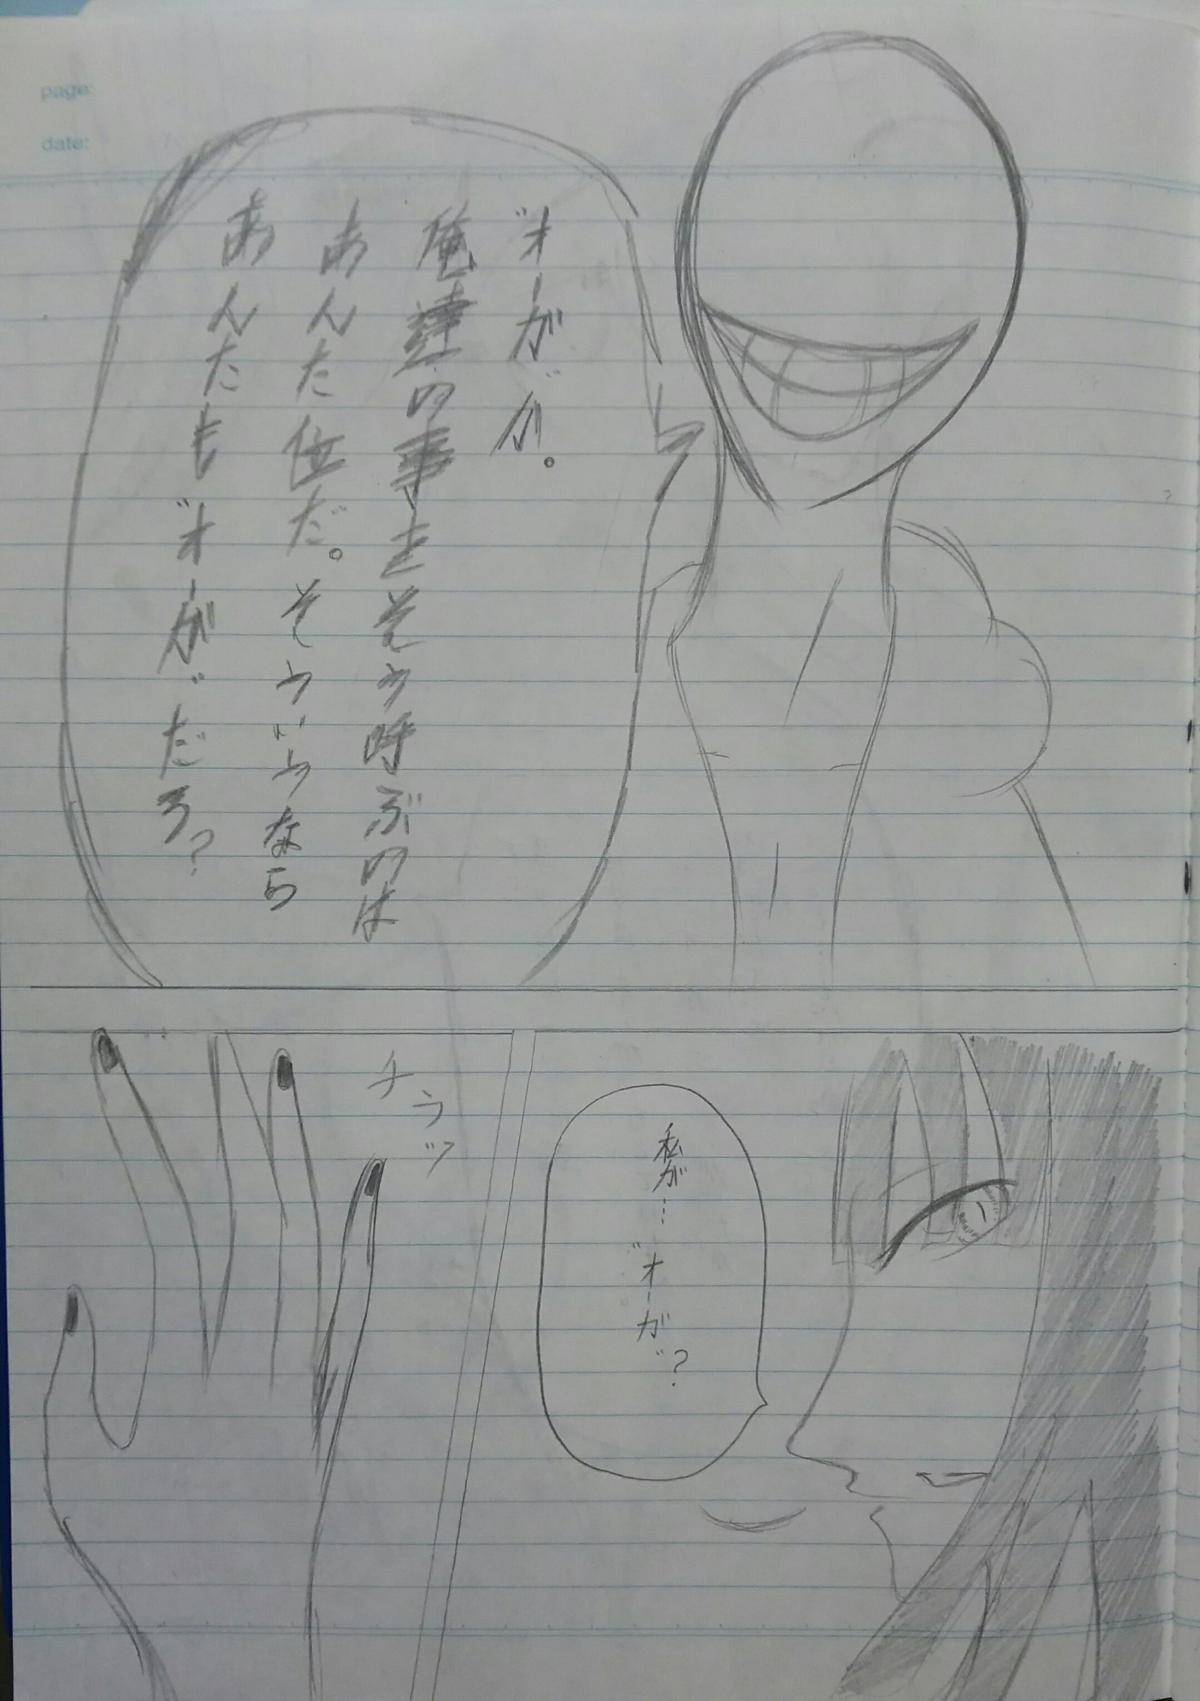 page:
date:
"オーガ"が。
俺達の事をそう呼ぶのは
あんた位だ。そういうなら
あんたも"オーガ"だろ?
私が…"オーガ"?
チラッ